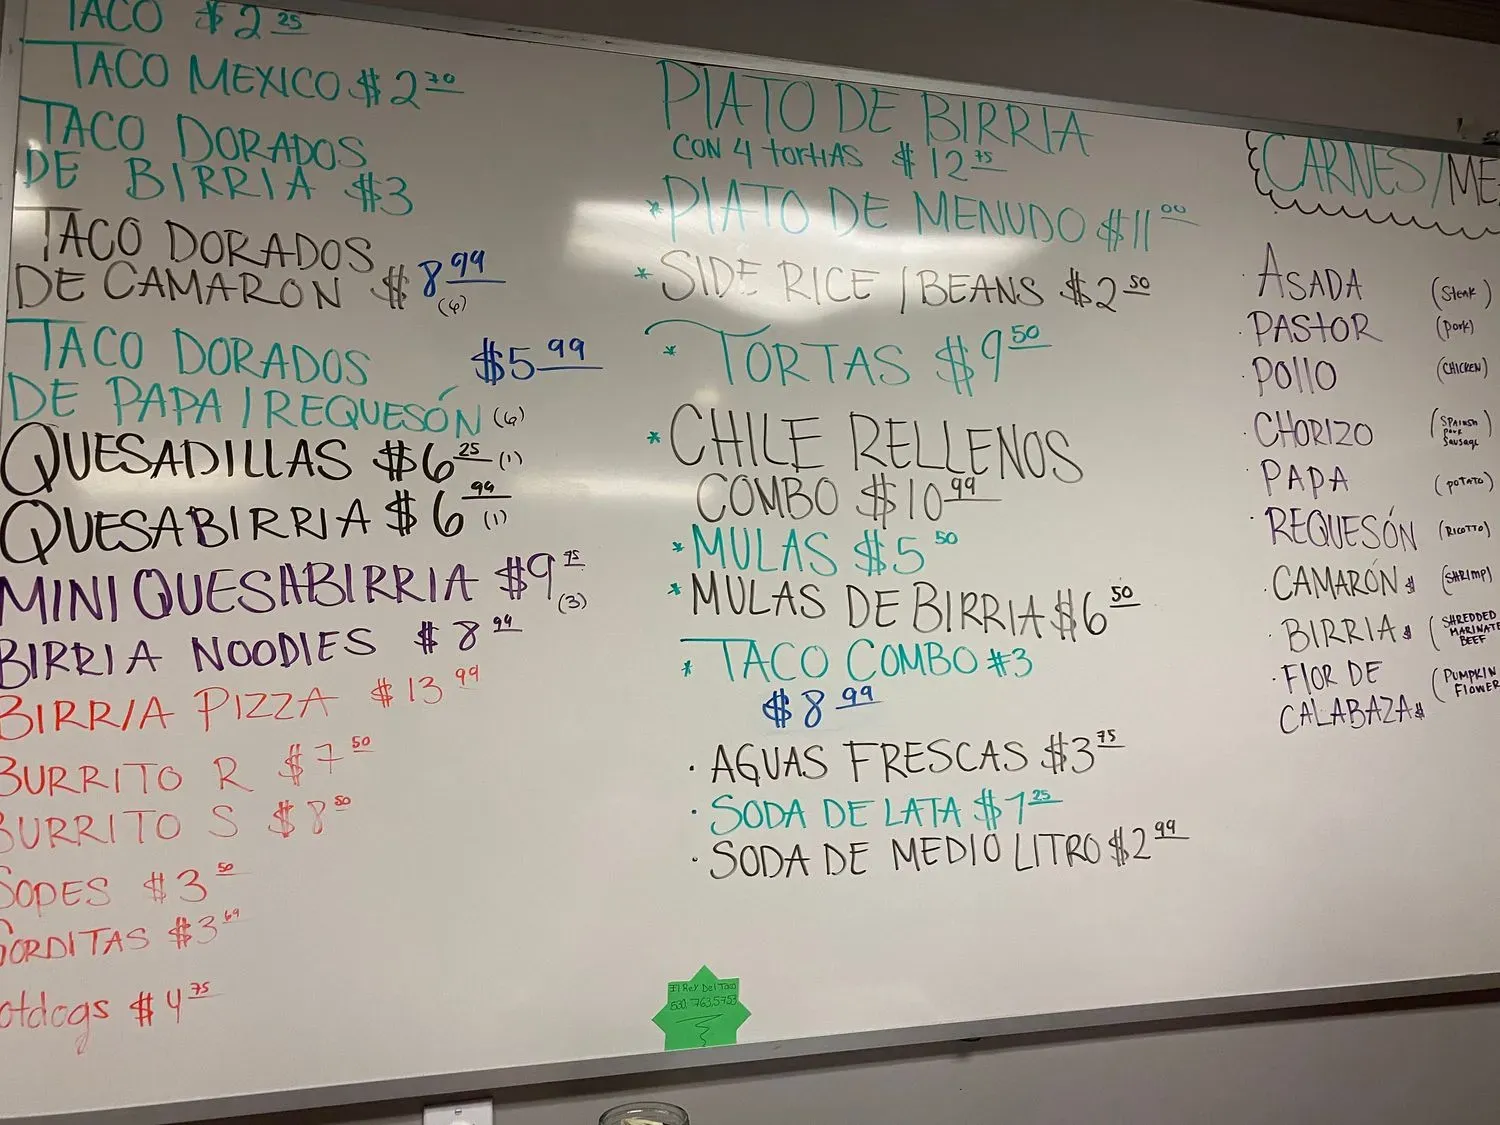 TACO $2.25
TACO MEXICO $2.70
TACO DORADOS
DE BIRRIA $3
TACO DORADOS
DE CAMARON $8.99
(6)
TACO DORADOS $5.99
DE PAPA/REQUESÓN (6)
QUESADILLAS $6.25 (1)
QUESABIRRIA $6.99 (1)
MINI QUESABIRRIA $9.75
(3)
BIRRIA NOODLES $8.99
BIRRIA PIZZA $13.99
BURRITO R $7.50
BURRITO S $8.50
SOPES $3.50
GORDITAS $3.69
otdogs $4.75
PLATO DE BIRRIA
CON 4 tortiAS $12.75
*PLATO DE MENUDO $11.00
*SIDE RICE/BEANS $2.50
* TORTAS $9.50
*CHILE RELLENOS
COMBO $10.99
*MULAS $5.50
*MULAS DE BIRRIA $6.50
* TACO COMBO #3
$8.99
· AGUAS FRESCAS $3.75
· SODA DE LATA $1.25
· SODA DE MEDIO LITRO $2.99
El Rey Del Taco
530.763.5753
CARNES/ME
· ASADA (Steak)
· PASTOR (pork)
· POLLO (CHICKEN)
· CHORIZO (SPAINSH pork Sausage)
· PAPA (POTATO)
· REQUESÓN (RICOTTO)
CAMARÓN$ (SHRIMP)
· BIRRIA$ (SHREDDED MARINATE BEEF
· FLOR DE (PUMPKIN FLOWER
CALABAZA$